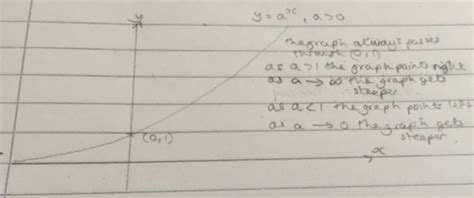 y
y = aˣ, a>0
the graph always passes
through (0,1)
as a>1 the graph points right
as a → ∞ the graph gets
steeper
as a<1 the graph points left
as a → 0 the graph gets
steeper
(0,1)
x